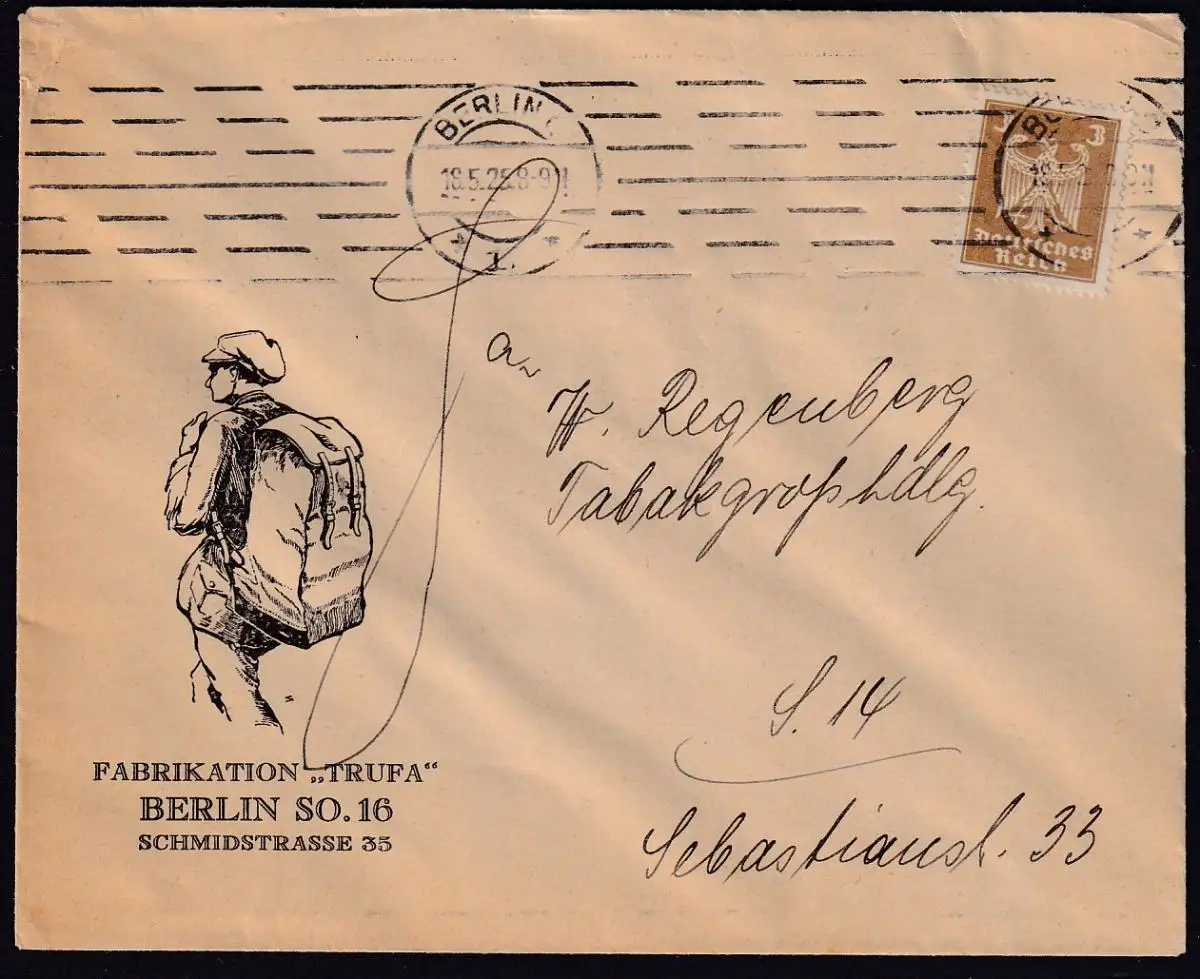 BERLIN
18.5.25.8-9N
1.
3 3
Deutsches
Reich
an
W. Regenberg
Tabakgroßhdlg.
S. 14
Sebastianst. 33
FABRIKATION „TRUFA“
BERLIN SO. 16
SCHMIDSTRASSE 35